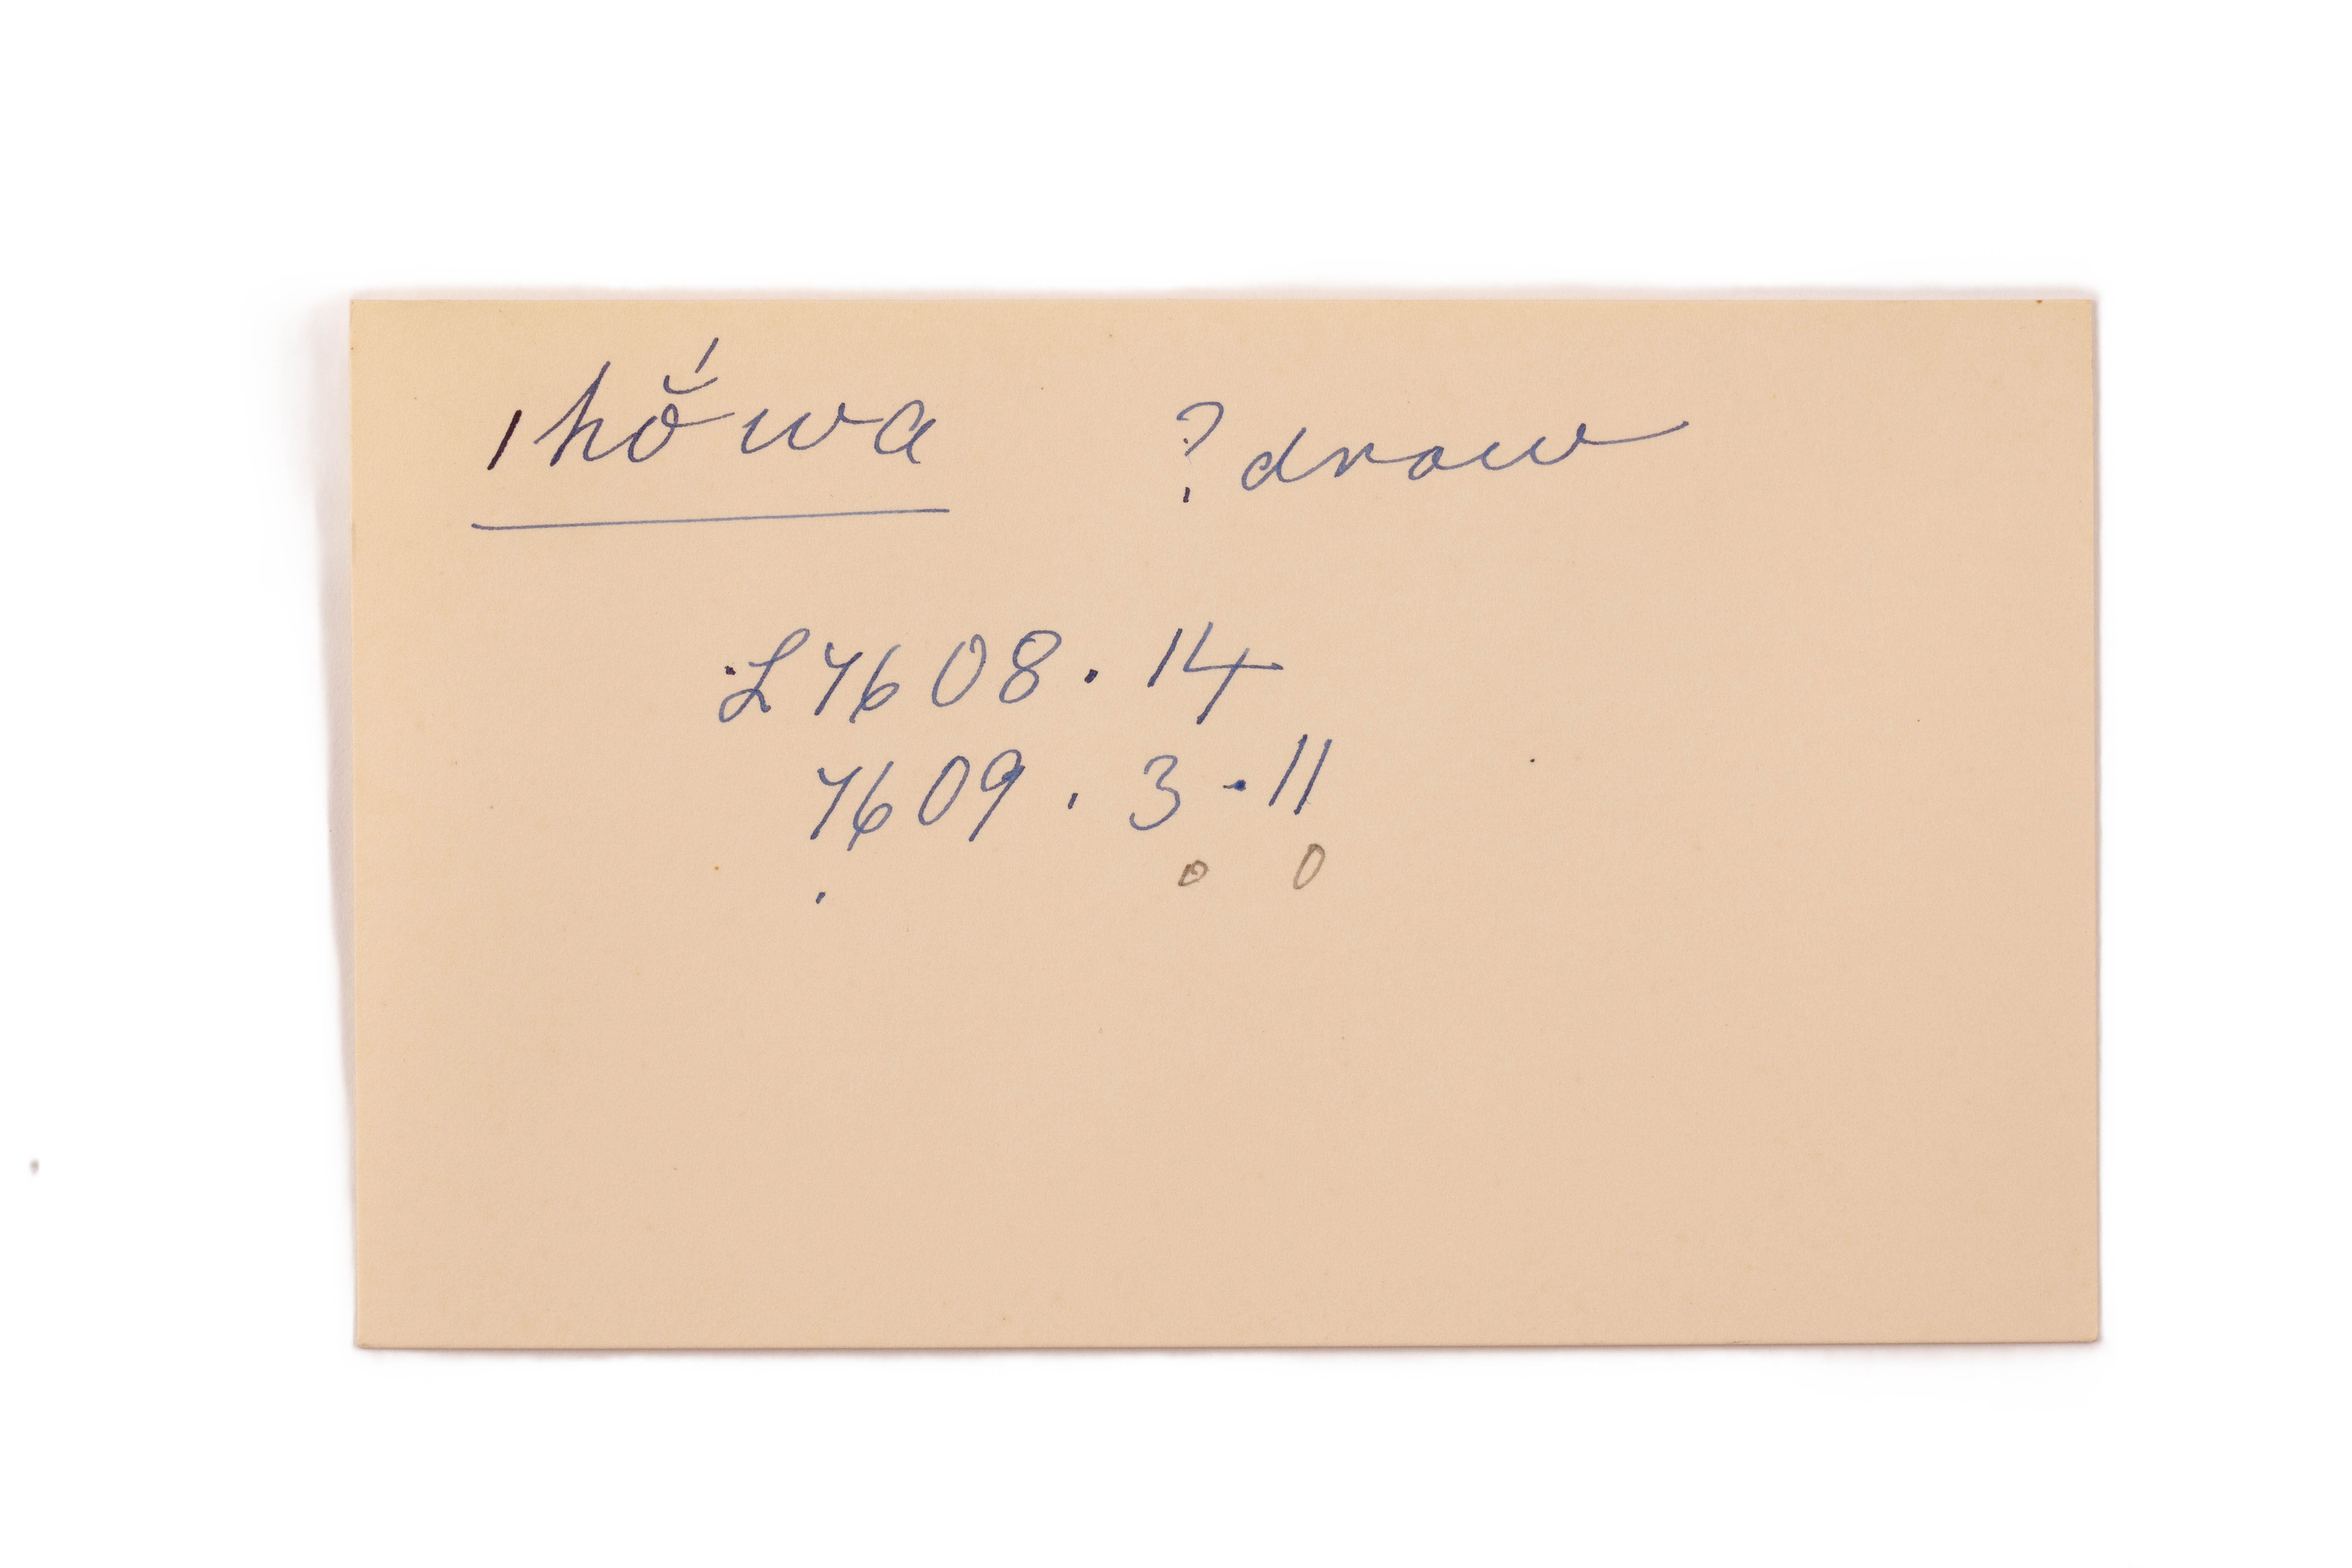 ǀhṍ̆wa ?draw
L7608.14
7609.3.11
o 0